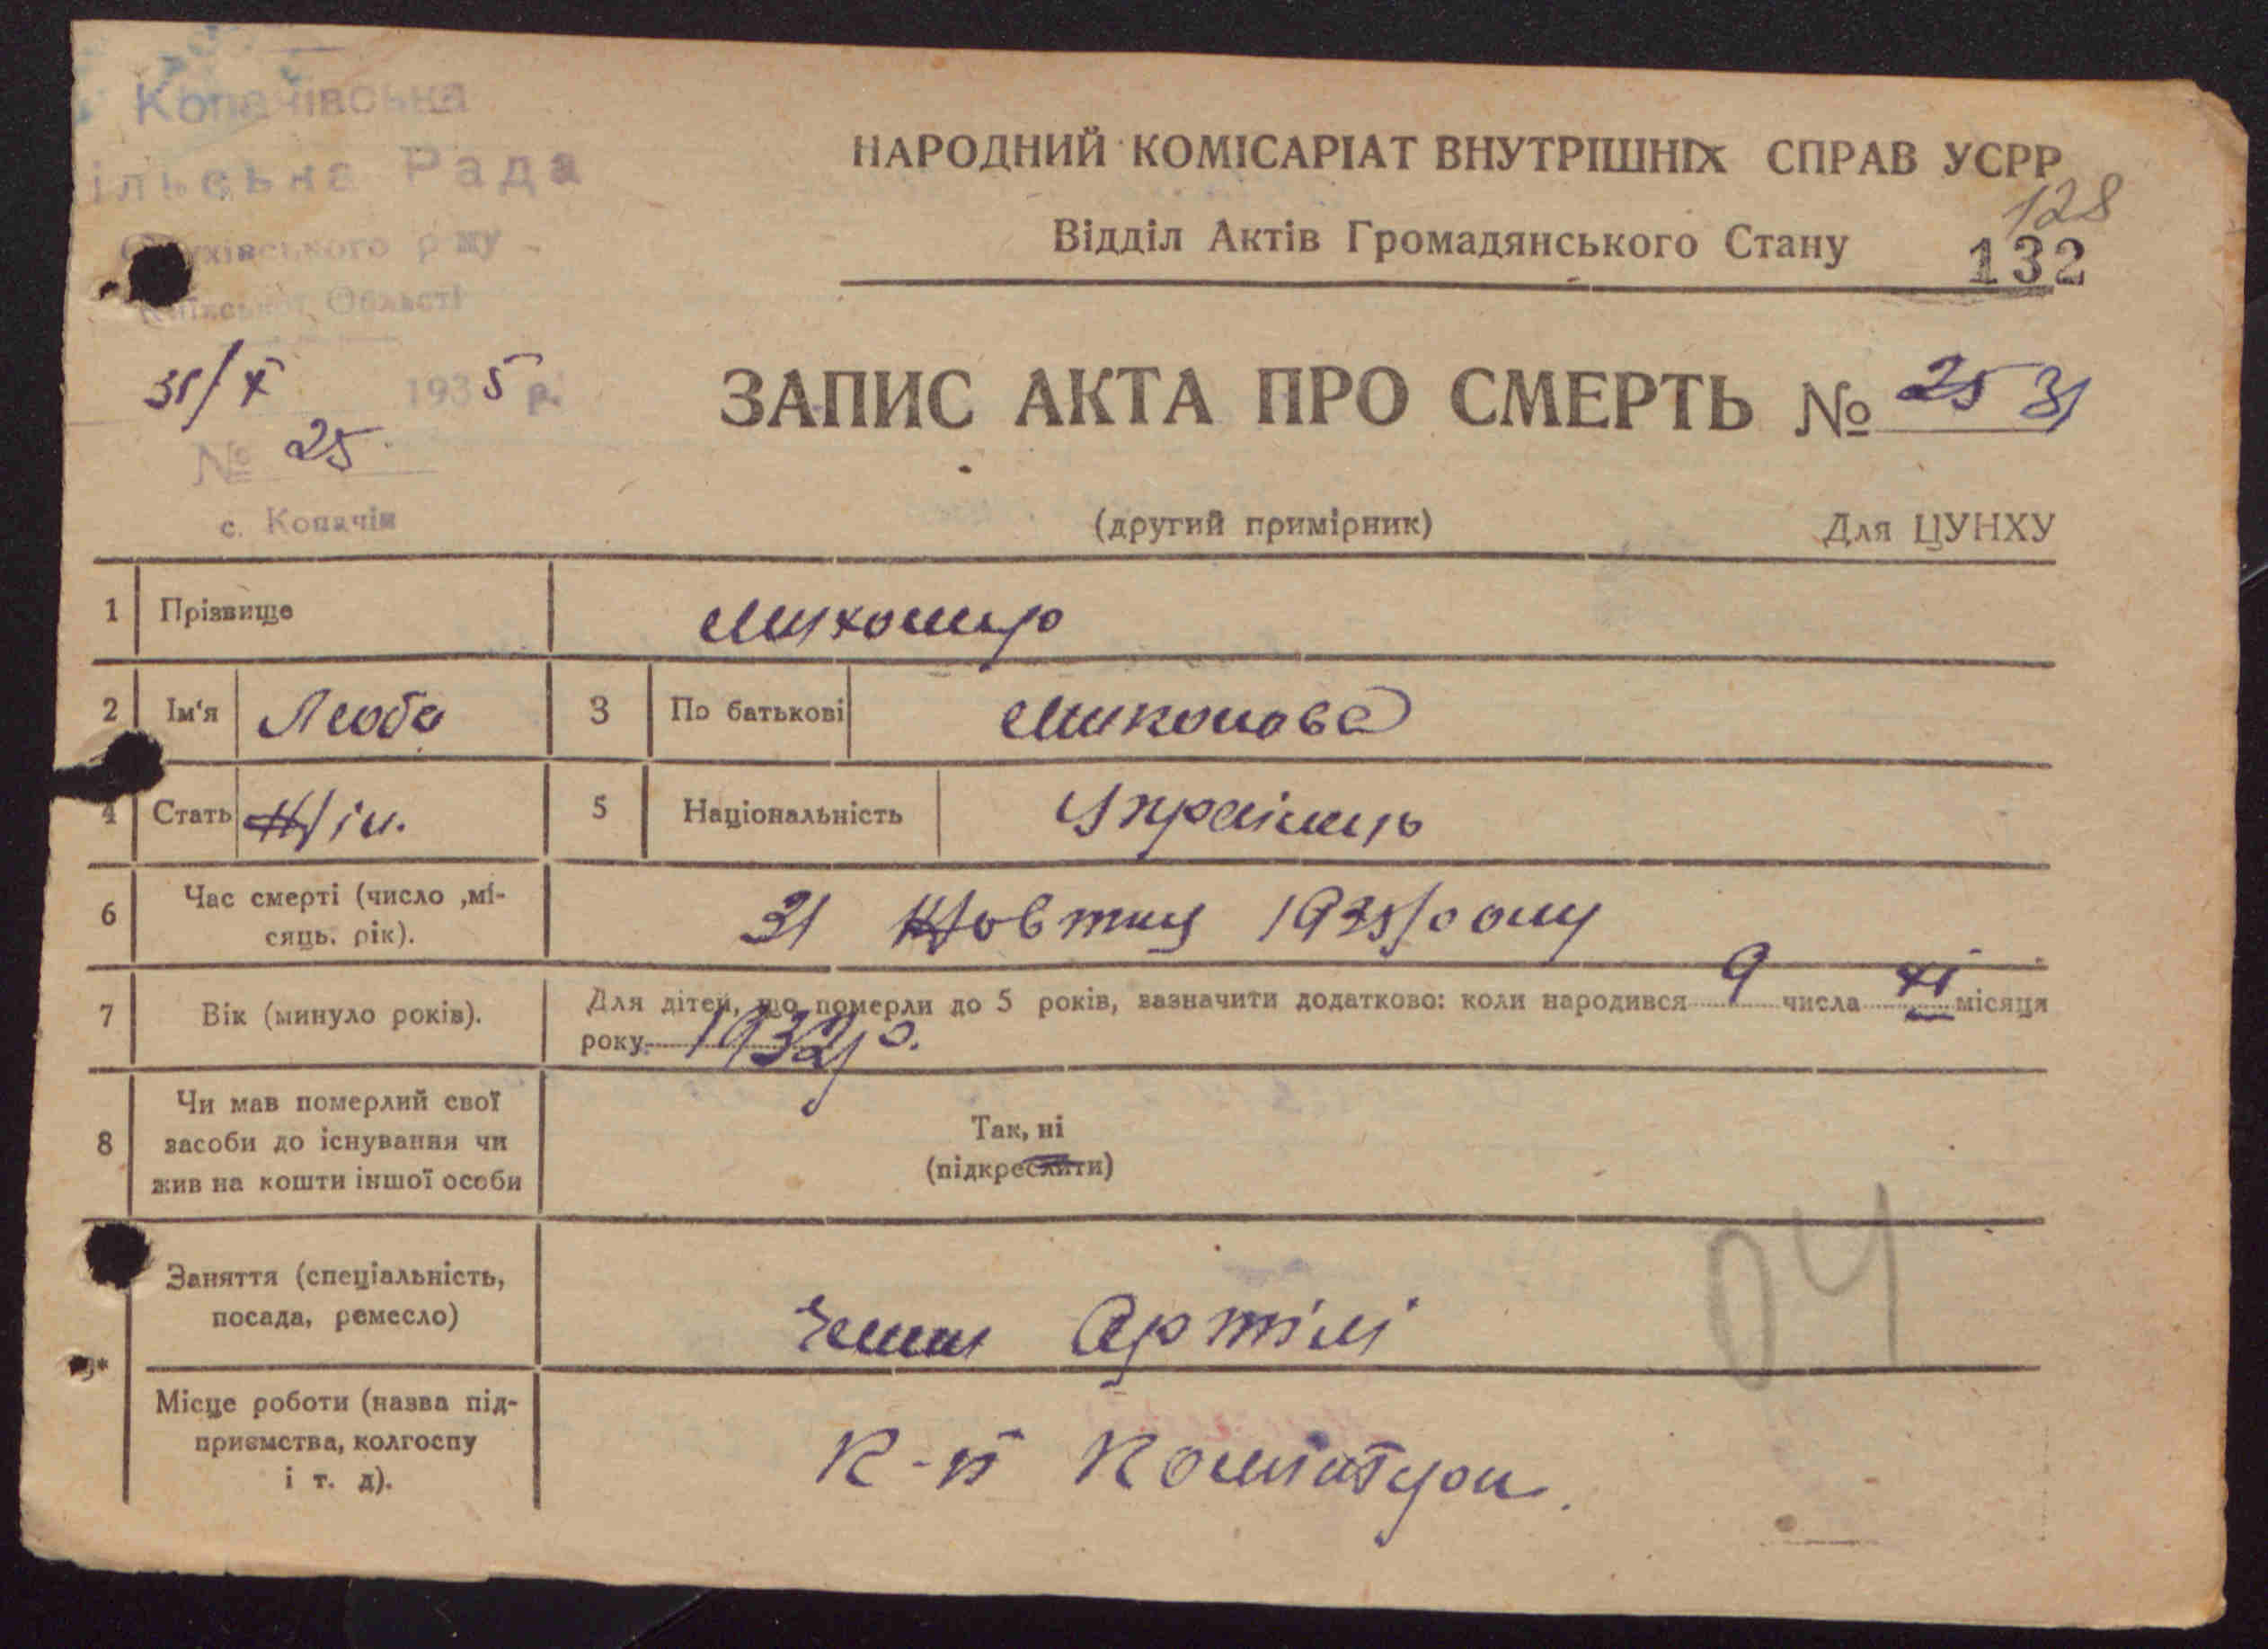 Копачівська
ільська Рада
Обухівського р-ну
Київської Області
31/X 1935 р.
№ 25
с. Копачів
НАРОДНИЙ КОМІСАРІАТ ВНУТРІШНІХ СПРАВ УСРР
128
Відділ Актів Громадянського Стану
132
ЗАПИС АКТА ПРО СМЕРТЬ № 25 31
(другий примірник) Для ЦУНХУ
1 Прізвище
2 Ім'я Люба 3 По батькові Миколова
4 Стать Жін. 5 Національність Українець
6 Час смерті (число ,мі-
сяць. рік).
31 Жовтня 1935 року
7 Вік (минуло років).
Для дітей, що померли до 5 років, зазначити додатково: коли народився 9 числа XI місяця
року 1932 р.
8 Чи мав померлий свої
засоби до існування чи
жив на кошти іншої особи
Так, ні
(підкреслити)
Заняття (спеціальність,
посада, ремесло)
Член Артілі
04
9*
Місце роботи (назва під-
приємства, колгоспу
і т. д).
К-п Комінтерн.